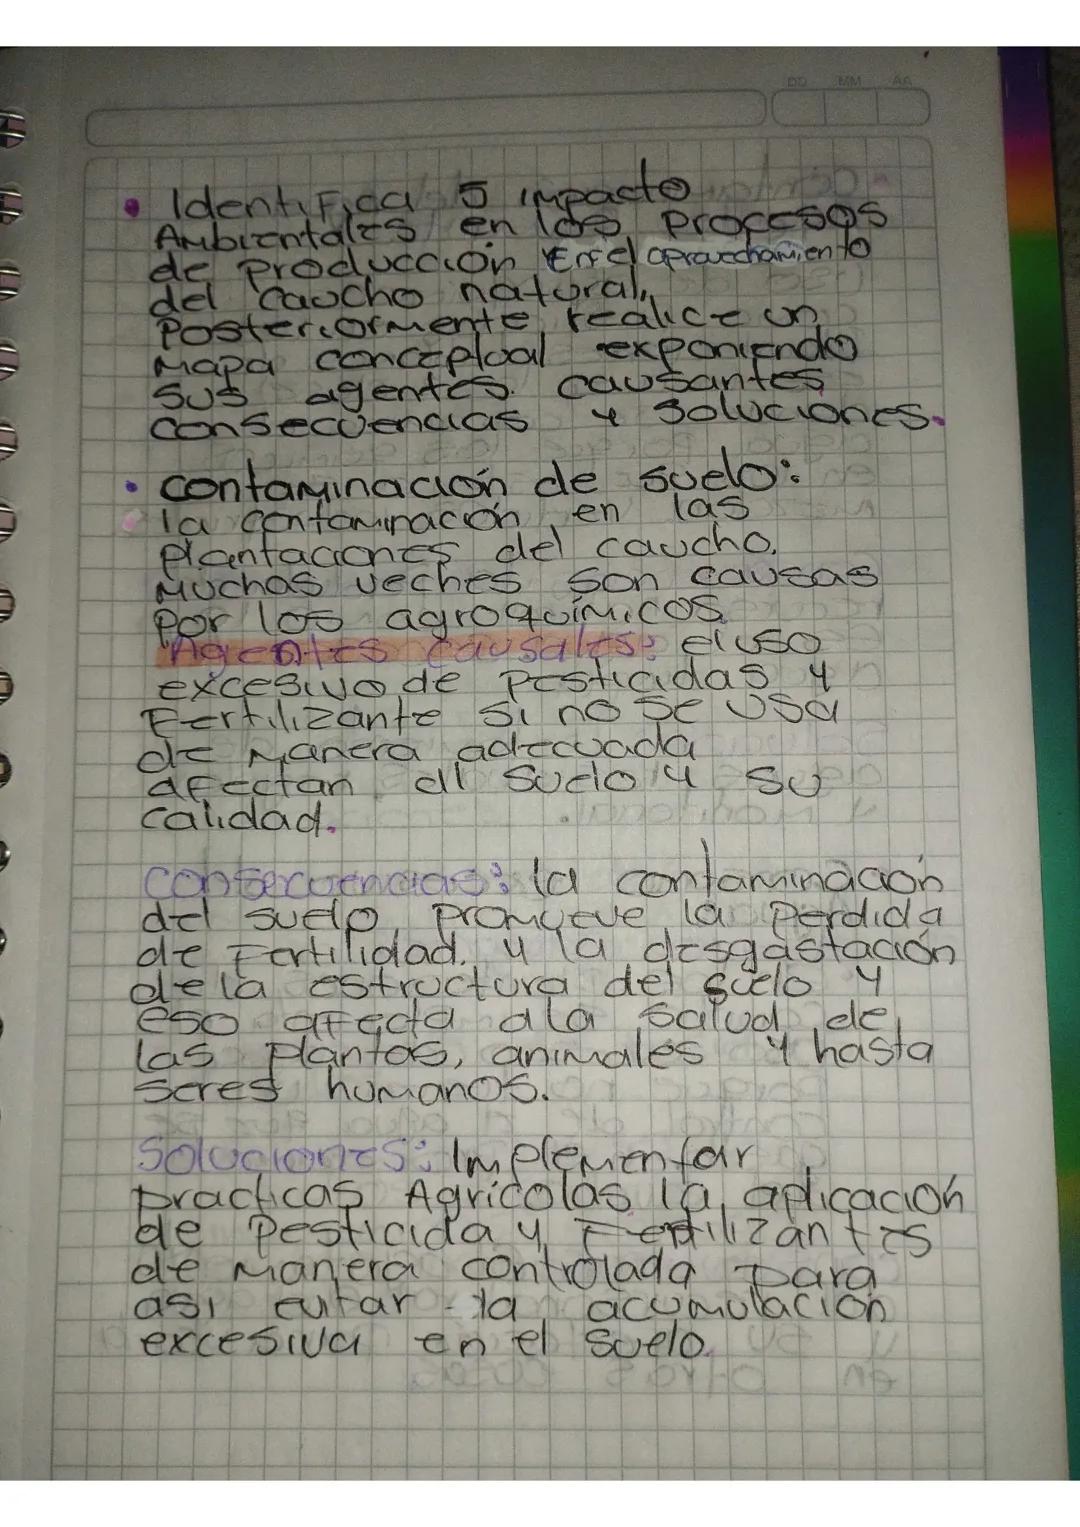 DD MM AA
• Identifica 5 impacto
Ambientales en los procesos
de producción En el aprovechamiento
del caucho natural,
Posteriormente, realice un
mapa conceptual exponiendo
sus agentes. causantes
consecuencias y soluciones.
• contaminación de suelo:
la contaminación en las
plantaciones del caucho.
Muchas veches son causas
Por los agroquímicos
"Agentes causales: el uso
excesivo de pesticidas y
Fertilizante si no se usa
de manera adecuada
afectan al suelo y su
calidad.
consecuencias: la contaminación
del suelo promueve la perdida
de Fertilidad. y la desgastación
de la estructura del suelo y
eso afecta a la salud de
las plantas, animales y hasta
seres humanos.
Soluciones: Implementar
practicas Agrícolas la aplicación
de Pesticida y Fertilizantes
de manera controlada para
asi evitar la acumulación
excesiva en el suelo.